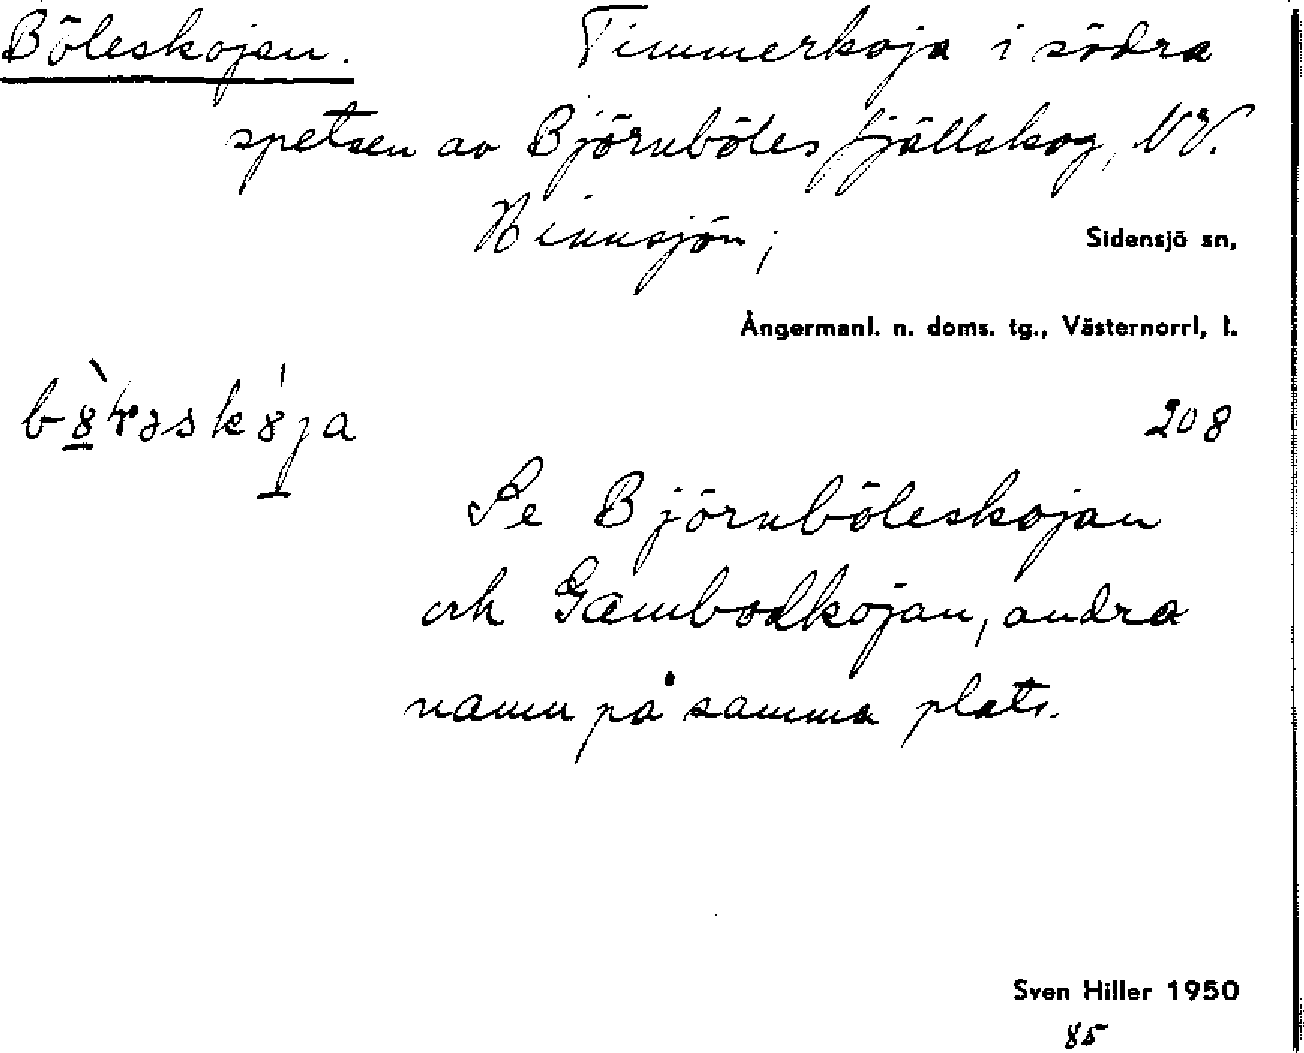 Böleskojan. Timmerkoja i södra
spetsen av Björnböles fjällskog, NV.
Hinnsjön;
Sidensjö sn,
Ångermanl. n. doms. tg., Västernorrl, l.
208
Se Björnböleskojan
och Gambodkojan, andra
namn på samma plats.
Sven Hiller 1950
85